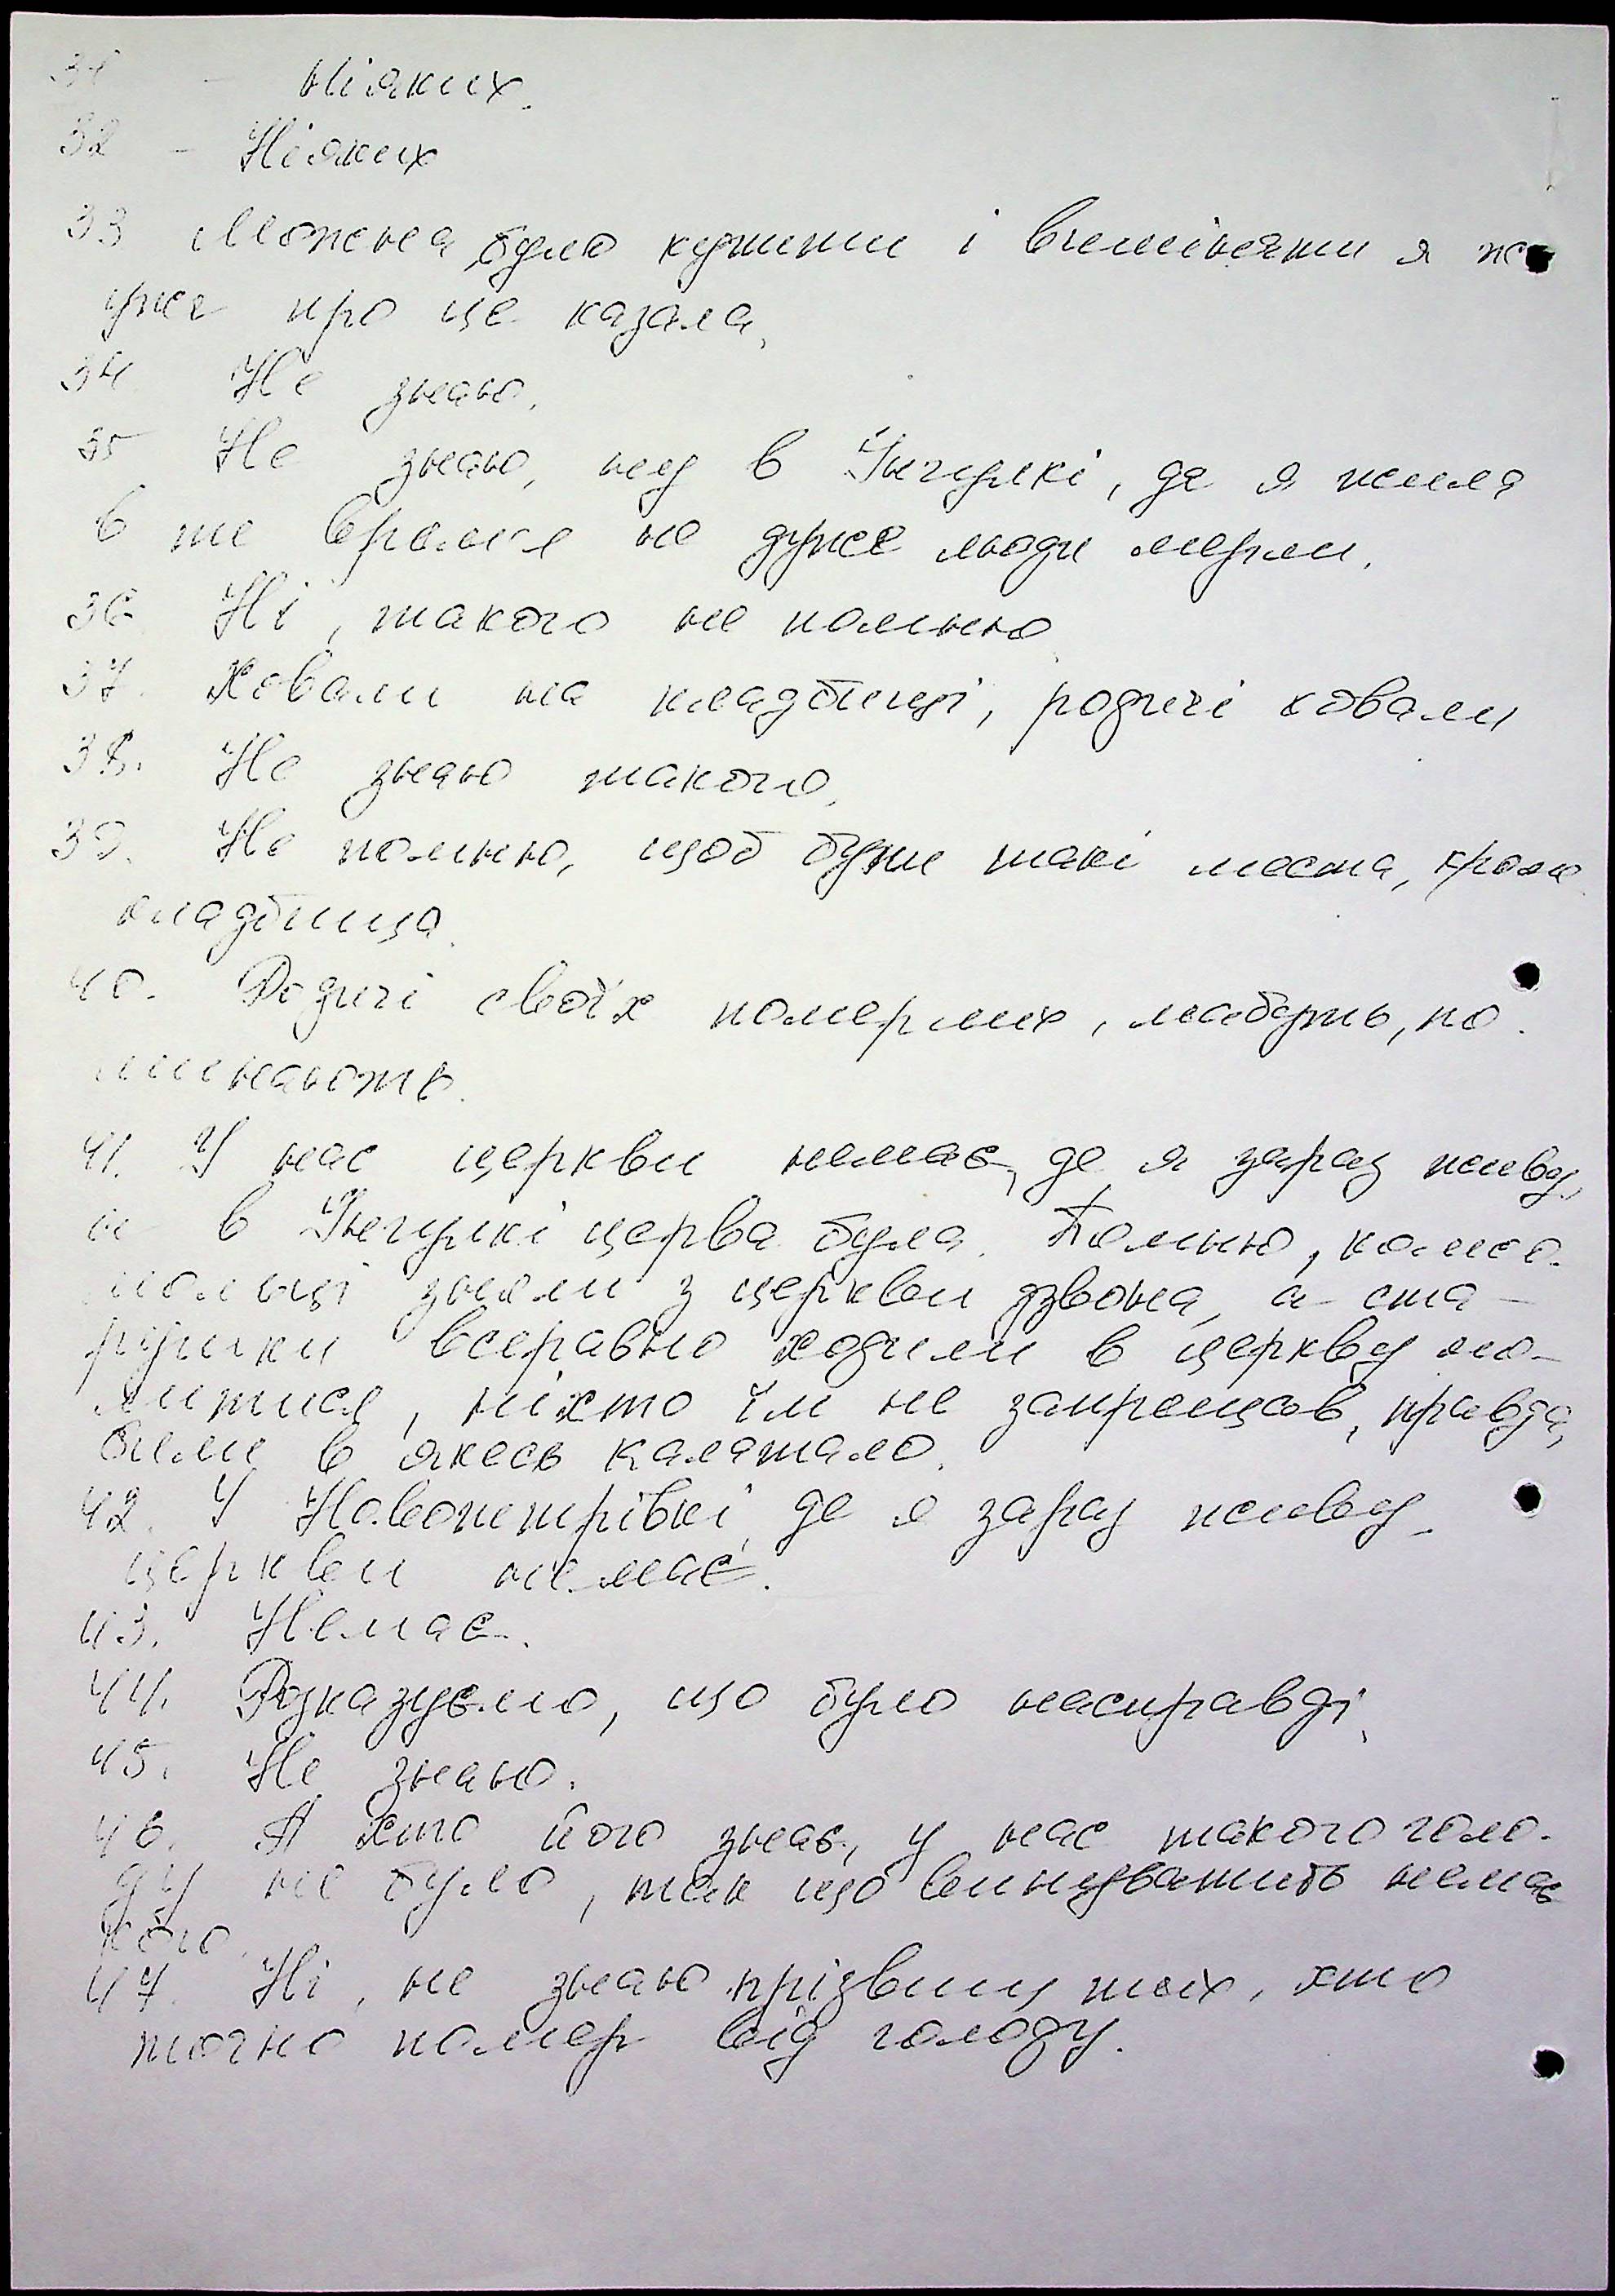 31 - Ніяких.
32 - Ніяких
33 Можна було купити і виміняти я ж
уже про це казала.
34. Не знаю.
35 Не знаю, ну в Інгулкі, де я жила
в те время не дуже люди мерли.
36 Ні, такого не помню.
37. Ховали на кладбищі, родичі ховали
38. Не знаю такого.
39. Не помню, щоб були такі места, кроме
кладбища.
40. Родичі своїх померлих, мабуть, по-
минають.
41. У нас церкви немає, де я зараз живу,
а в Інгулкі церва була. Помню, комсо-
мольці зняли з церкви дзвона, а ста-
рушки всеравно ходили в церкву мо-
литися, ніхто їм не запрещав, правда,
били в якесь калатало.
42. У Новопетрівкі, де я зараз живу
церкви немає.
43. Немає.
44. Розказуємо, що було насправді.
45. Не знаю.
46. А хто його знає, у нас такого голо-
ду не було, так що винуватить немає
кого.
47. Ні, не знаю прізвищ тих, хто
точно помер від голоду.